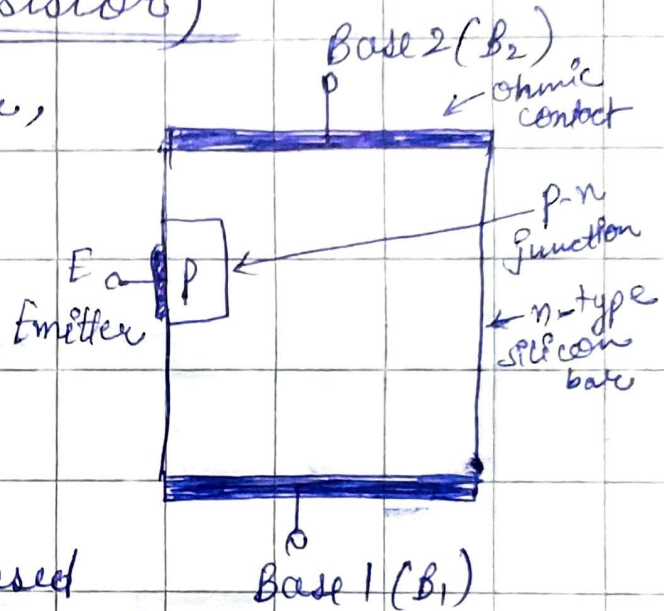 sistor)
Base 2 (B₂)
ohmic
contact
p-n
junction
E
p
Emitter
n-type
silicon
bar
sed
Base 1 (B₁)